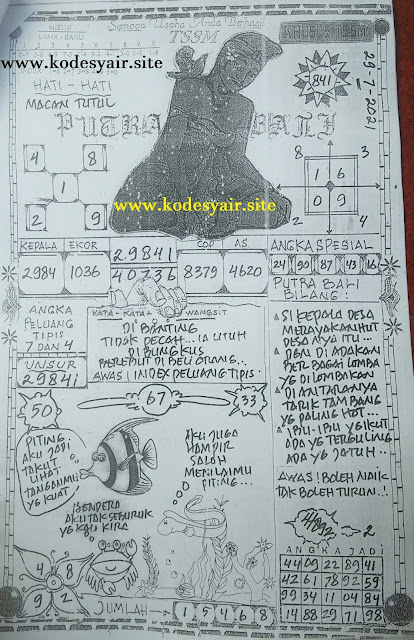 Semoga Usaha Anda Berhasil
TSSM
MISTIK
www.kodesyair.site
HATI - HATI
MACAN TUTUL
841
29-7-2021
PUTRA BALI
www.kodesyair.site
4 8
1
2 9
8 3
1 6
0 9
2 4
KEPALA EKOR 29841 COP AS ANGKA SPESIAL
2984 1036 40736 8379 4620 24 90 87 43 16
PUTRA BALI
BILANG :
ANGKA
PELUANG
TIPIS
7 DAN 4
UNSUR
2984
KATA - KATA WANGSIT
DI BANTING
TIDAK PECAH... IA UTUH
DI BUNGKUS
DI BELI ORANG..
AWAS ! INDEX PELUANG TIPIS
SI KEPALA DESA
MERAYAKAN HUT
DESA NYA ITU...
DGN DI ADAKAN
BERBAGAI LOMBA
YG DI LOMBAKAN
DI ANTARANYA
TARIK TAMBANG
YG PALING HOT...
IBU-IBU YG IKUT
ADA YG TERGULING
ADA YG JATUH..
AWAS ! BOLEH NAIK
TAK BOLEH TURUN..!
50 67 33
PITING..
AKU JADI
TAKUT
LIHAT
TANGANMU
YG KUAT
AKU JUGA
HAMPIR
SALAH
MENILAIMU
PITING...
AKU TAK SEBURUK
YG KAU KIRA
4 8
9 2
2
ANGKA JADI
44 09 22 89 41
42 61 78 92 59
99 34 11 04 84
14 88 29 71 98
JUMLAH 1 5 4 6 8